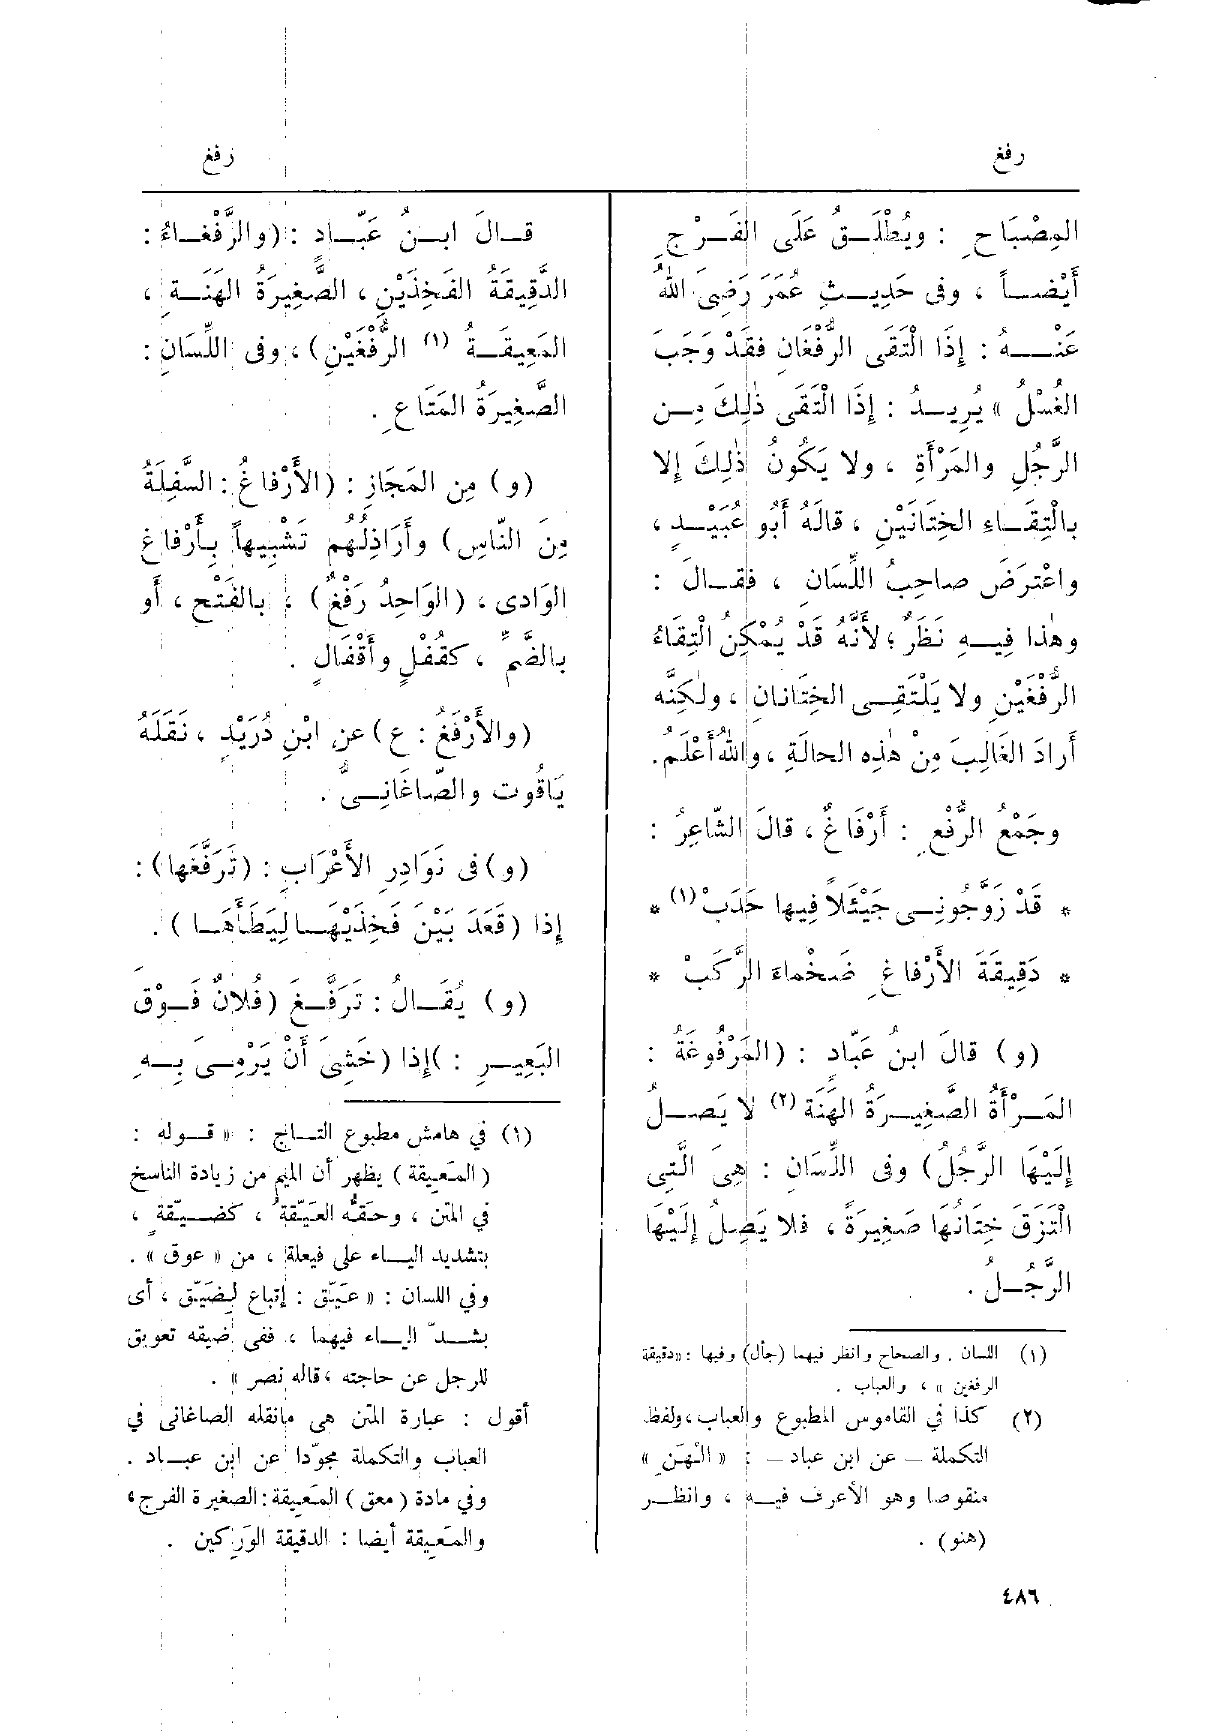 رفغ
رفغ
المِصْبَاحِ : ويُطْلَقُ عَلَى الفَرْجِ
أَيْضاً ، وفى حَدِيثِ عُمَرَ رَضِىَ اللهُ
عَنْهُ : إِذَا الْتَقَى الرُّفْغَانِ فقَدْ وَجَبَ
الغُسْلُ » يُرِيدُ : إِذَا الْتَقَى ذٰلِكَ مِن
الرَّجُلِ والمَرْأَةِ ، ولا يَكُونُ ذٰلِكَ إِلا
بالْتِقَاءِ الخِتَانَيْنِ ، قالَهُ أَبُو عُبَيْدٍ ،
واعْتَرَضَ صاحِبُ اللِّسَانِ ، فقالَ :
وهٰذا فِيهِ نَظَرٌ ؛ لأَنَّهُ قَدْ يُمْكِنُ الْتِقَاءُ
الرُّفْغَيْنِ ولا يَلْتَقِى الخِتَانانِ ، ولٰكِنَّه
أَرادَ الغَالِبَ مِنْ هٰذِه الحالَةِ ، واللهُ أَعْلَم.
وجَمْعُ الرُّفْغِ : أَرْفَاغٌ ، قالَ الشّاعِرُ :
* قَدْ زَوَّجُونِى جَيْئَلاً فِيها حَدَبْ (١) *
* دَقِيقَةَ الأَرْفاغِ ضَخْماءَ الرَّكَبْ *
(و) قالَ ابنُ عَبّادٍ : (المَرْفُوغَةُ :
المَرْأَةُ الصَّغِيرَةُ الهَنَةِ (٢) لا يَصِلُ
إِلَيْهَا الرَّجُلُ) وفى اللِّسَانِ : هِىَ الَّتِى
الْتَزَقَ خِتَانُهَا صَغِيرَةً ، فلا يَصِلُ إِلَيْهَا
الرَّجُلُ .
(١) اللسان . والصحاح وانظر فيهما (جأل) وفيها : «دقيقة
الرفغين » ، والعباب .
(٢) كذا في القاموس المطبوع والعباب، ولفظ
التكملة – عن ابن عباد – : « الهَنِ »
منقوصا وهو الأعرف فيه ، وانظر
(هنو) .
قالَ ابنُ عَبّادٍ : (والرَّفْغاءُ :
الدَّقِيقَةُ الفَخِذَيْنِ ، الصَّغِيرَةُ الهَنَةِ ،
المَعِيقَةُ (١) الرُّفْغَيْنِ) ، وفى اللِّسَانِ :
الصَّغِيرَةُ المَتَاعِ .
(و) مِن المَجَازِ : (الأَرْفاغُ : السَّفِلَةُ
مِنَ النّاسِ) وأَرَاذِلُهُم تَشْبِيهاً بأَرْفاغِ
الوَادِى ، (الوَاحِدُ رَفْغٌ) ، بالفَتْحِ ، أَو
بالضَّمِّ ، كقُفْلٍ وأَقْفَالٍ .
(والأَرْفَغُ : ع) عن ابْنِ دُرَيْدٍ ، نَقَلَهُ
يَاقُوت والصّاغَانِىُّ .
(و) فى نَوَادِرِ الأَعْرَابِ : (تَرَفَّغَها) :
إِذا (قَعَدَ بَيْنَ فَخِذَيْهَا لِيَطَأَهَا ) .
(و) يُقَالُ : تَرَفَّغَ (فُلانٌ فَوْقَ
البَعِيرِ : )إِذا (خَشِىَ أَنْ يَرْمِىَ بِهِ
(١) في هامش مطبوع التاج : « قوله :
(المَعِيقة) يظهر أن الميم من زيادة الناسخ
في المتن ، وحَقُّه العَيِّقَة ، كضَيِّقةٍ ،
بتشديد الياء على فيعلة ، من « عوق » .
وفي اللسان : « عَيِّق : إتباع لِضَيِّق ، أى
بشدّ الياء فيهما ، ففى ضيقه تعويق
للرجل عن حاجته ، قاله نصر » .
أقول : عبارة المتن هى ما نقله الصاغانى في
العباب والتكملة مجوّدا عن ابن عباد .
وفي مادة (معق) المَعِيقة : الصغيرة الفرج ،
والمَعِيقة أيضا : الدقيقة الوَرِكين .
٤٨٦